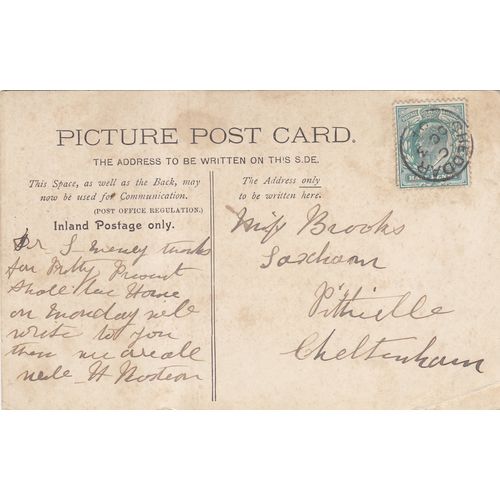 PICTURE POST CARD.
THE ADDRESS TO BE WRITTEN ON THIS S.DE.
This Space, as well as the Back, may
now be used for Communication.
(POST OFFICE REGULATION.)
Inland Postage only.
The Address only
to be written here.
Dr S many thanks
for Pretty Present
Shall be Home
on Monday will
write to you
then we are all
well H
Miss Brooks
Saxham
Pittville
Cheltenham